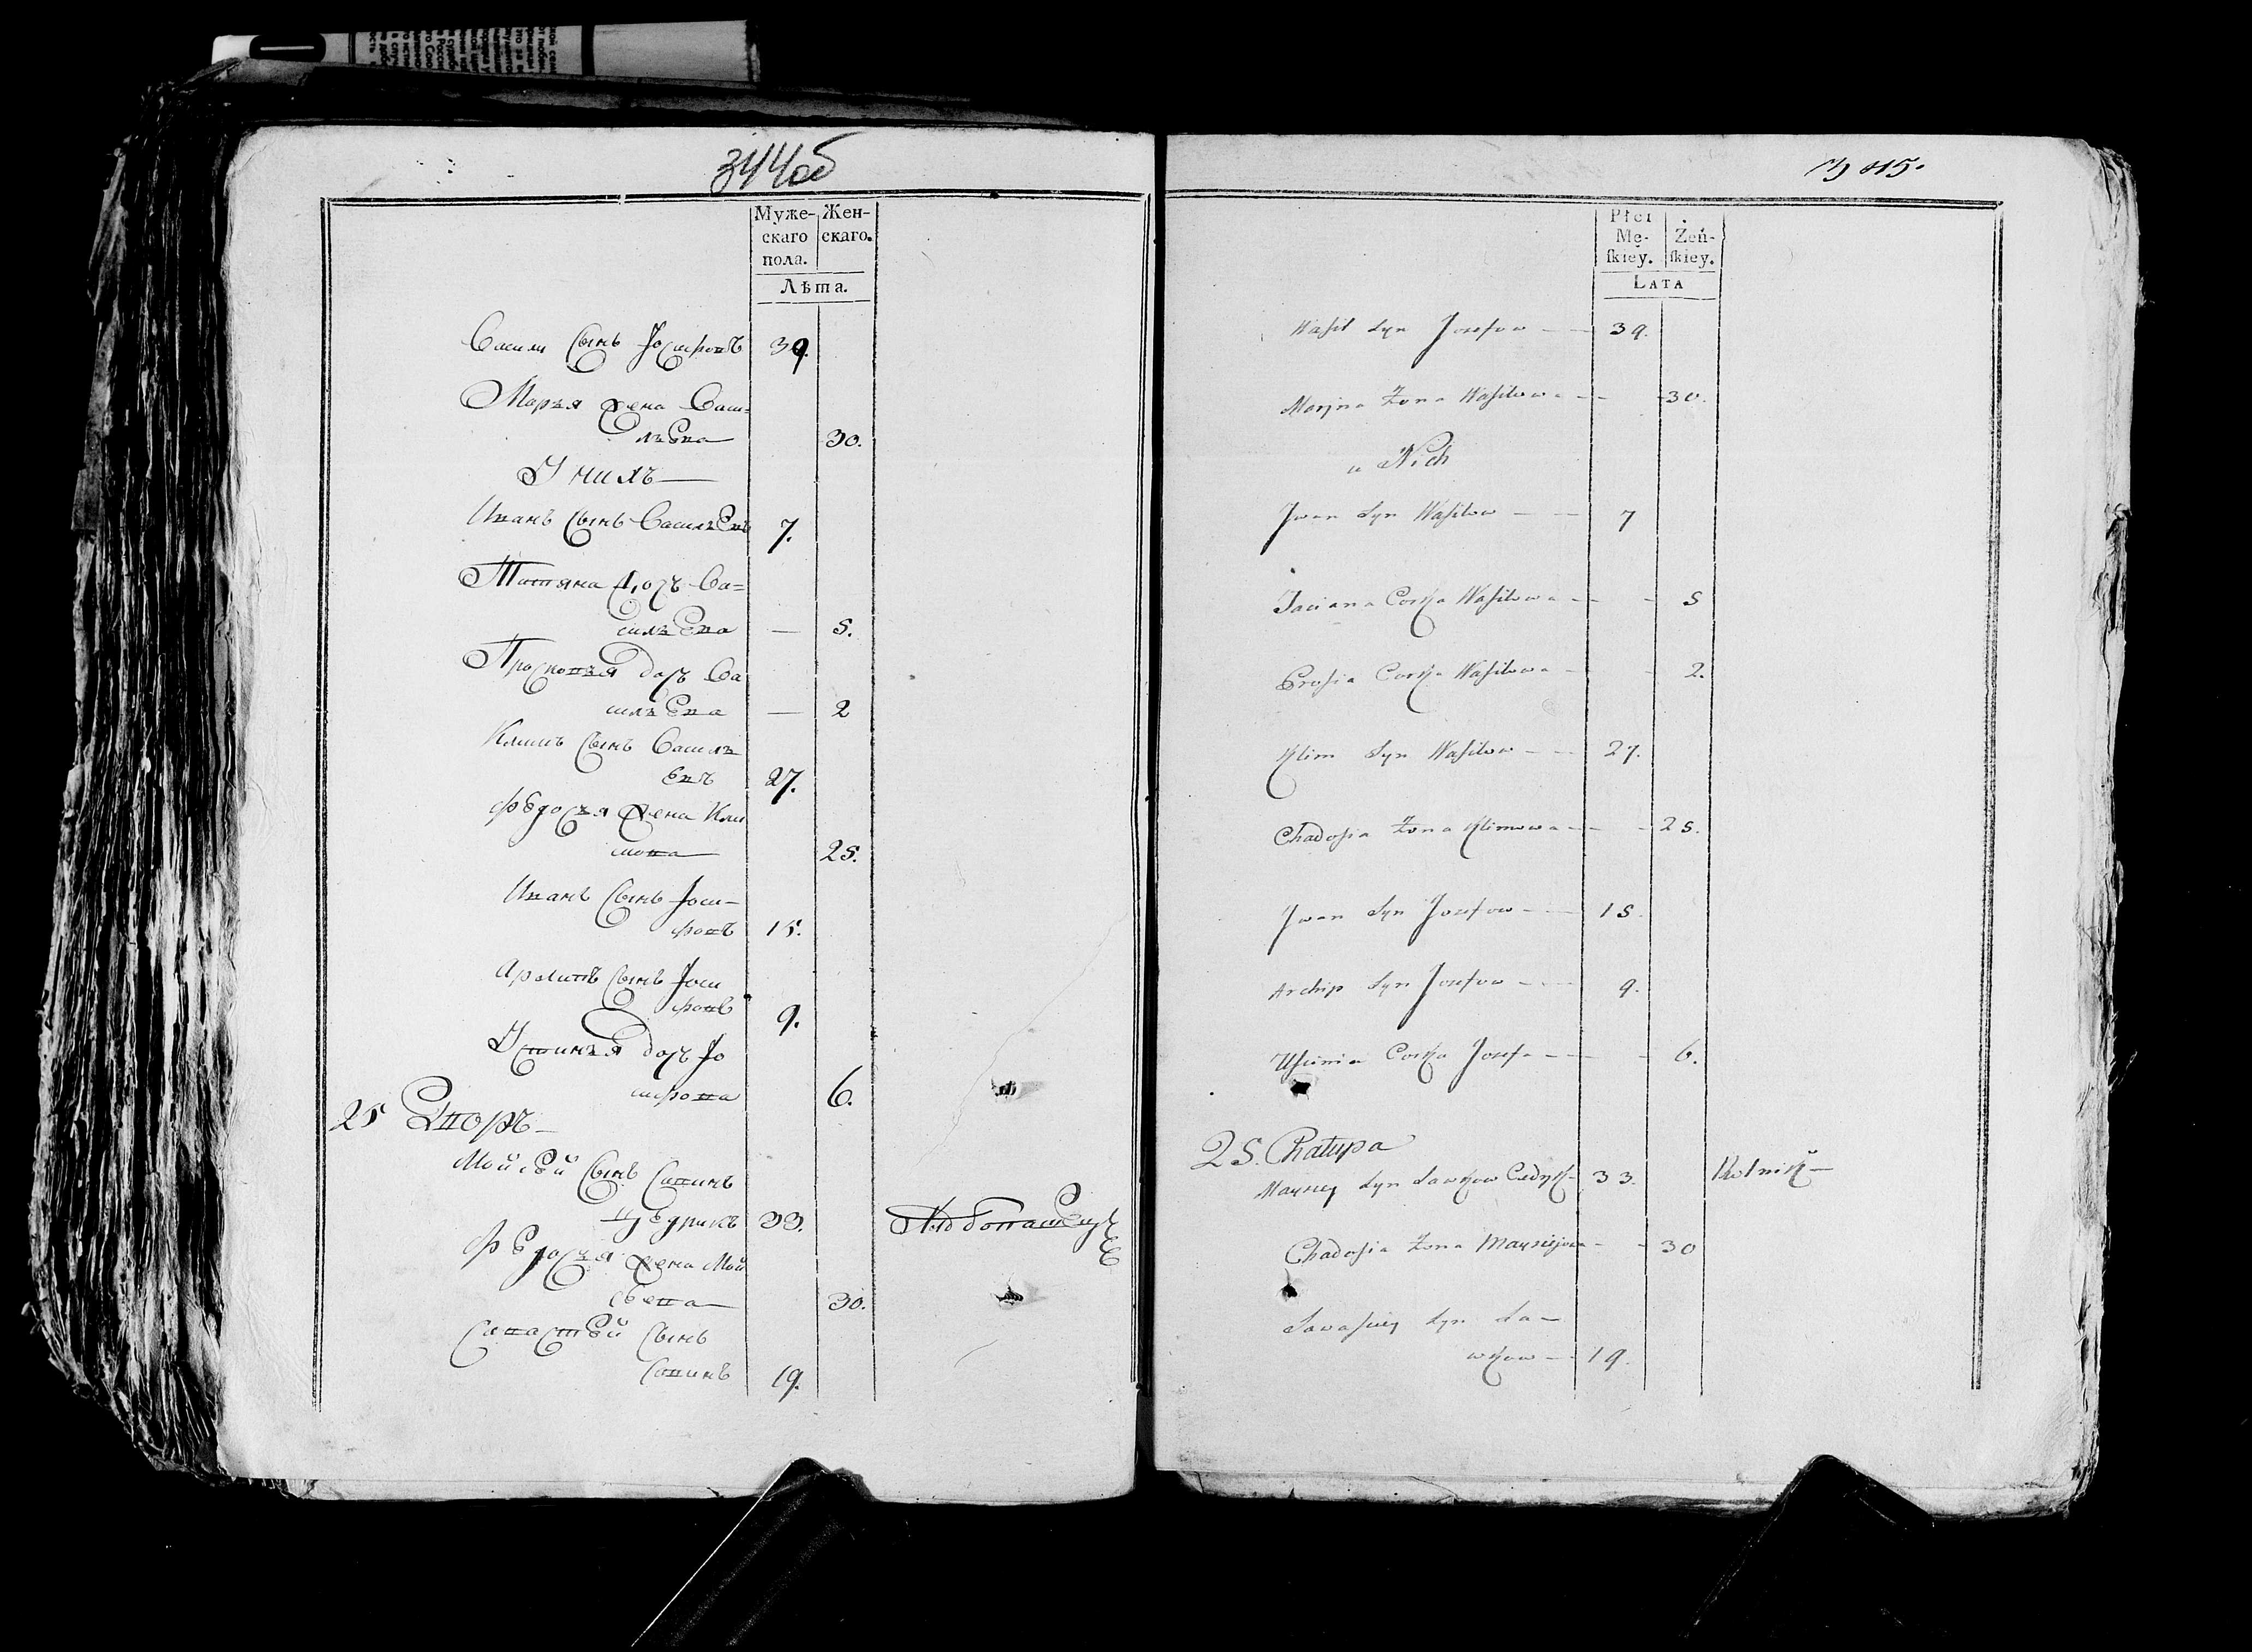 344об
Муже- Жен-
скаго скаго.
пола.
Лѣта.
Васили Сынъ Іосифовъ 39.
Марья Жена Васи=
льева 30.
У нихъ
Иванъ Сынъ Васильевъ 7.
Татяна Дочь Ва=
сильева — 5.
Просковья дочь Ва
сильева — 2
Климъ Сынъ Василь
евъ 27.
Федосья Жена Кли
мова 25.
Иванъ Сынъ Іоси-
фовъ 15.
Архипъ Сынъ Іоси
фовъ 9.
Устинья дочь Іо
сифова 6.
25 Дворъ
Мойсей Сынъ Савинъ
33.
Федосья Жена Мой
сеева 30.
Савастей Сынъ
Савинъ 19.
815.
Płci
Mę- Żeń-
ſkiey. ſkiey.
LATA
Waſil Syn Jozefow — 39.
Maryna Żona Waſilowa — 30.
u Nich
Jwan Syn Waſilow — 7
Taciana Corka Waſilowa — 5
Proſia Corka Waſilowa — 2.
Klim Syn Waſilow — 27.
Chadoſia Żona Klimowa — 25.
Jwan Syn Jozefow — 15.
Archip Syn Jozefow — 9.
Uſcinia Corka Jozefa — 6.
25. Chałupa
Mayſiey Syn Sawkow 33. Rolnik —
Chadoſia Żona Mayſiejowa — 30
Sawaſtiey Syn Sa—
wkow — 19.